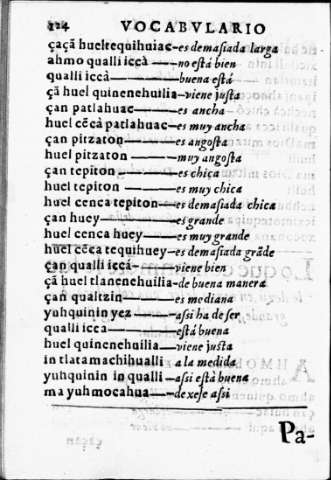 224 VOCABVLARIO
çaçã hueltequihuiac—es demasiada larga
ahmo qualli iccà——no està bien
qualli iccà———buena està
çã huel quinenehuilia—viene justa
çan patlahuac——es ancha
huel cẽcà patlahuac—es muy ancha
çan pitzaton——es angosta
huel pitzaton——muy angosta
çan tepiton——es chica
huel tepiton——es muy chica
huel cenca tepiton—es demasiada chica
çan huey———es grande
huel cenca huey——es muy grande
huel cẽca tequihuey—es demasiada grãde
çan qualli iccà——viene bien
çã huel tlanenehuilia—de buena manera
çan qualtzin——es mediana
yuhquinin yez——assi ha de ser
qualli icca———està buena
huel quinenehuilia—viene justa
in tlatamachihualli a la medida
yuhquinin in qualli—assi està buena
ma yuhmocahua—dexese assi
Pa-